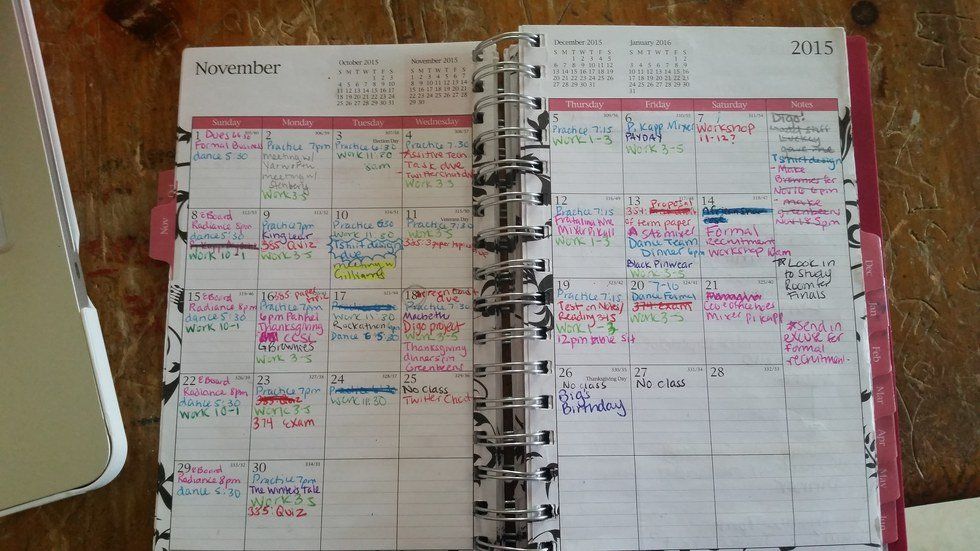 November
October 2015
S M T W T F S
1 2 3
4 5 6 7 8 9 10
11 12 13 14 15 16 17
18 19 20 21 22 23 24
25 26 27 28 29 30 31
November 2015
S M T W T F S
1 2 3 4 5 6 7
8 9 10 11 12 13 14
15 16 17 18 19 20 21
22 23 24 25 26 27 28
29 30
Sunday Monday Tuesday Wednesday
1 Dues
Formal Business
dance 5:30
2
Practice 7pm
meeting w/
meeting w/
Work 3-5
3
Election Day
Practice 6:30
Work 11:30
8am
4
Practice 6:30
Task due
Twitter Chat due
Work 3-5
8 EBoard
Radiance 8pm
dance 5:30
Work 10-1
9
Practice 7pm
King Lear
335: Quiz
Work 3-5
10
Practice 6:30
Work 11:30
Tshirt design
due
meeting w/
Gilliams
11
Veterans Day
Practice 6:30
Work 3-5
335: 3 paper topics
15 EBoard
Radiance 8pm
dance 5:30
Work 10-1
16 335 paper
Practice 7pm
6pm Panhel
Thanksgiving
CCSL
Brownies
Work 3-5
17
Work 11:30
Rockathon 6pm
Dance 6:30
18
due
Practice 6:30
Macbeth
Digo project
Work 3-5
Thanksgiving
dinner in
Greenbeens
22 EBoard
Radiance 8pm
dance 5:30
Work 10-1
23
Practice 7pm
335: Quiz
Work 3-5
374 exam
24
Work 11:30
25
No class
Twitter Chat
29 EBoard
Radiance 8pm
dance 5:30
30
Practice 7pm
The Winter's Tale
Work 3-5
335: Quiz
Nov
December 2015
S M T W T F S
1 2 3 4 5
6 7 8 9 10 11 12
13 14 15 16 17 18 19
20 21 22 23 24 25 26
27 28 29 30 31
January 2016
S M T W T F S
1 2
3 4 5 6 7 8 9
10 11 12 13 14 15 16
17 18 19 20 21 22 23
24 25 26 27 28 29 30
31
2015
Thursday Friday Saturday Notes
5
Practice 7:15
Work 1-3
6
P. Kapp Mixer
Work 3-5
7
Workshop
11-12?
Digo!
Tshirt design
- Make
Nov 16 6pm
- make
greenbeens
Nov 18 5pm
12
Practice 7:15
Mixer Pikapp
Work 1-3
13 Proposal
of term paper
Mixer
Dance Team
Dinner 6pm
Black Pinwear
Work 3-5
14
Formal
Recruitment
Workshop 10am
* Look in
to study
Room for
Finals
19
Practice 7:15
Test on Notes/
Reading 345
Work 1-3
12pm table sit
20 7-10
Dance Formal
374 exam
Work 3-5
21
Mixer pikapp
* Send in
excuse for
Formal
recruitment.
26
Thanksgiving Day
No class
Big's
Birthday
27
No class
28
Dec
Jan
Feb
Mar
Apr
May
Jun